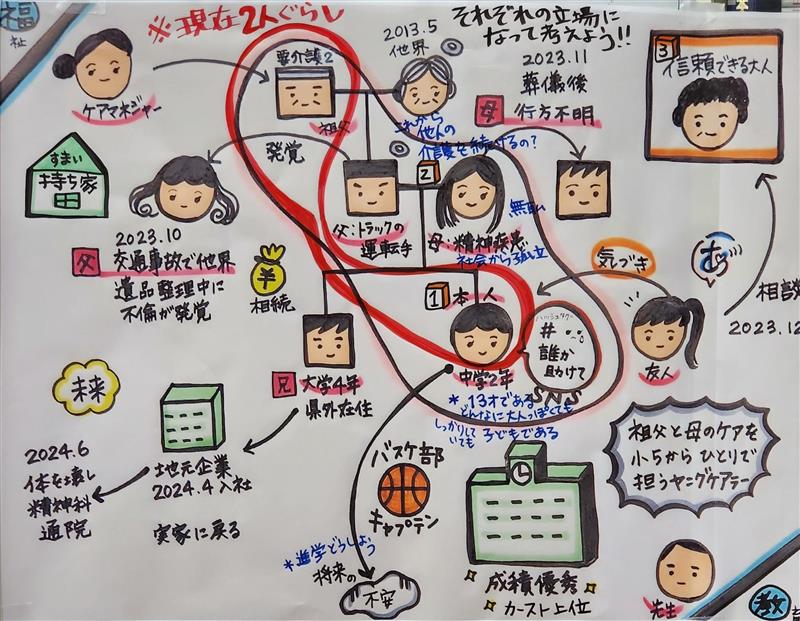 福
祉
※現在2人ぐらし
それぞれの立場に
なって考えよう!!
ケアマネジャー
要介護2
祖父
2013.5
他界
2023.11
葬儀後
母 行方不明
3
信頼できる大人
これから
他人の
介護を続けるの?
すまい
持ち家
発覚
父:トラックの
運転手
2
母:精神疾患
無職
社会から孤立
2023.10
父 交通事故で他界
遺品整理中に
不倫が発覚
¥
相続
気づき
相談
2023.12
1 本人
中学2年
ハッシュタグ
#
誰か
助けて
SNS
友人
兄 大学4年
県外在住
*13才である
どんなに大人っぽくても
しっかりして
いても 子どもである
未来
地元企業
2024.4入社
実家に戻る
2024.6
体を壊し
精神科
通院
バスケ部
キャプテン
祖父と母のケアを
小5からひとりで
担うヤングケアラー
*進学どうしよう
将来の
不安
成績優秀
カースト上位
先生
教